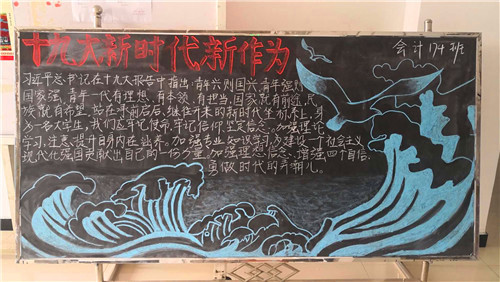 十九大新时代新作为
会计174班
习近平总书记在十九大报告中指出,青年兴则国兴,青年强则
国家强。青年一代有理想,有本领,有担当,国家就有前途,民
族就有希望。站在承前启后,继往开来的新时代坐标上,身
为一名大学生,我们应牢记使命,牢记信仰,坚定信念。加强理论
学习,注意设计自身内在涵养。加强专业知识学习,为建设社会主义
现代化强国贡献出自己的一份力量。加强理想信念,增强四个自信,
勇做时代的弄潮儿。